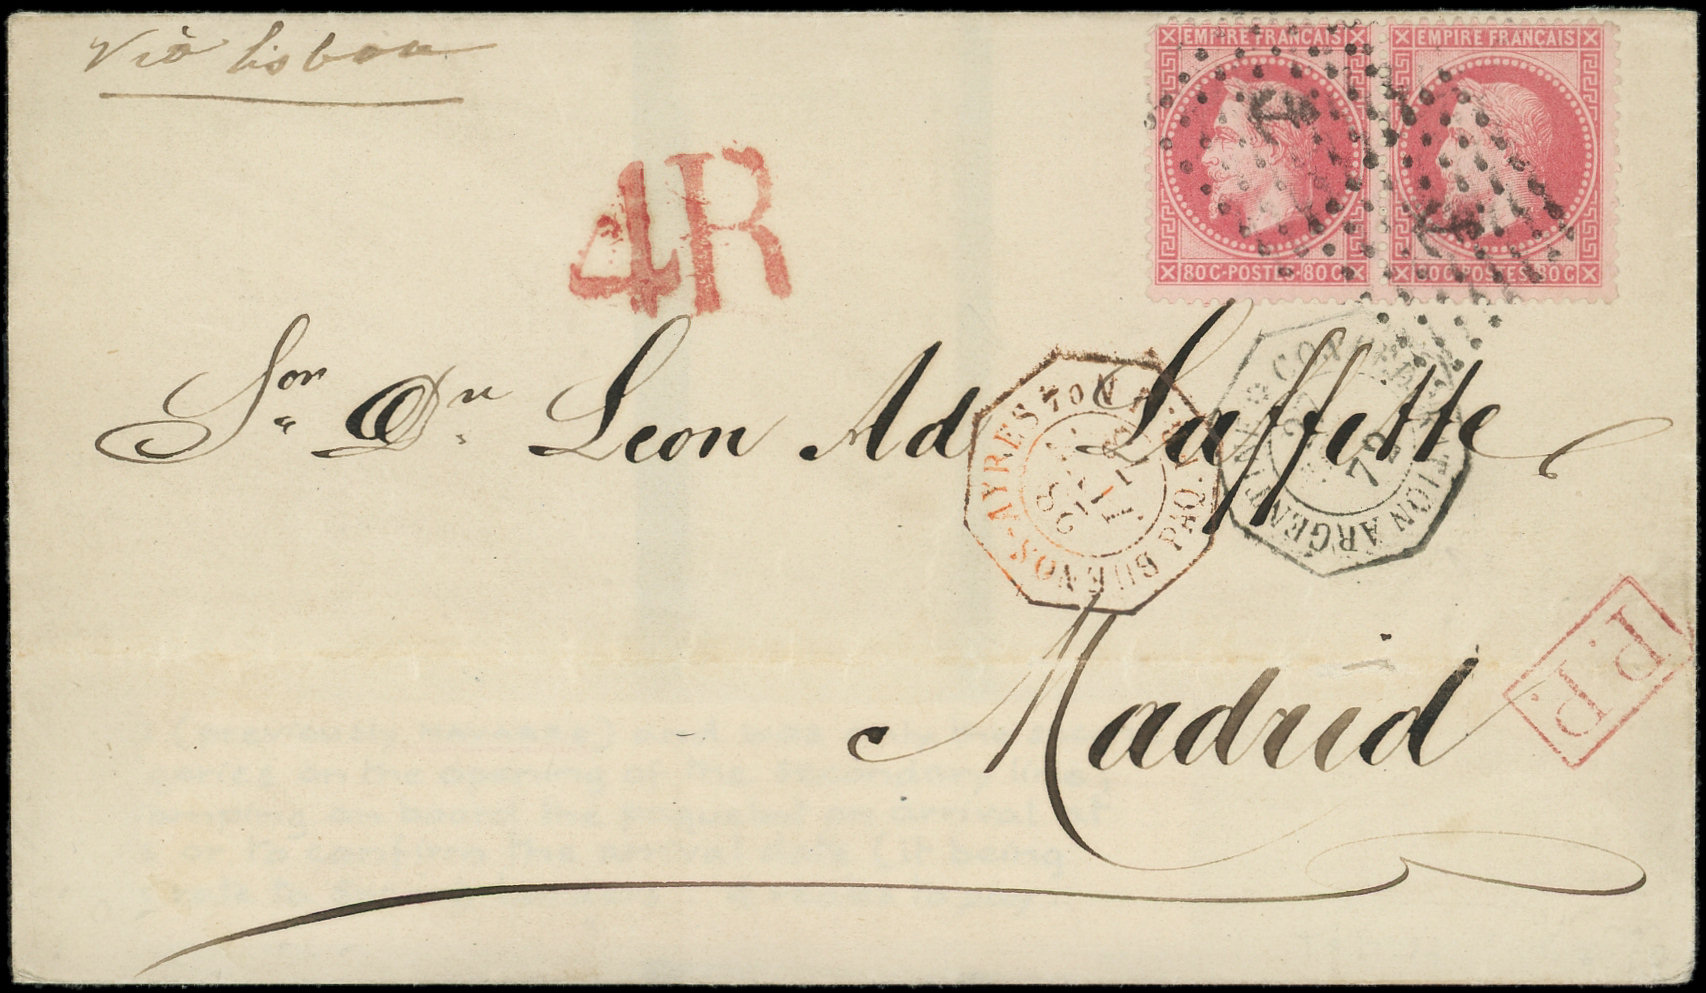 Viâ Lisboa
EMPIRE FRANCAIS
80 C·POSTES·80 C
EMPIRE FRANCAIS
80 C·POSTES·80 C
4R
Sor. Dn. Leon Ad Laffitte
BUENOS-AYRES
PAQ.
72
ARGENT
Madrid
P.P.